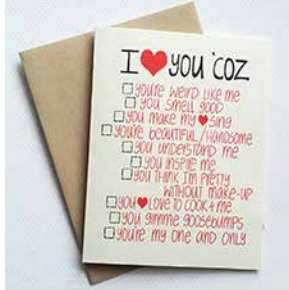 I ❤ YOU 'COZ
☐ YOU'RE WEIRD LIKE ME
☐ YOU SMELL GOOD
☐ YOU MAKE MY ❤ SING
☐ YOU'RE BEAUTIFUL/HANDSOME
☐ YOU UNDERSTAND ME
☐ YOU INSPIRE ME
☐ YOU THINK I'M PRETTY
WITHOUT MAKE-UP
☐ YOU ❤ LOVE TO COOK 4 ME
☐ YOU GIMME GOOSEBUMPS
☐ YOU'RE MY ONE AND ONLY